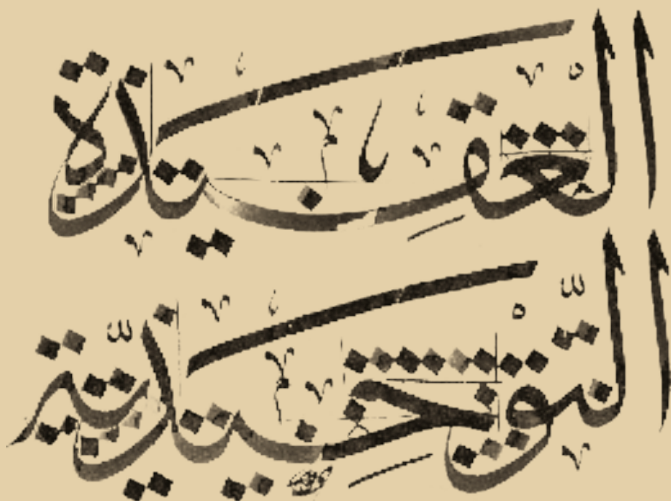 العَقِيدَة
التَّوْحِيدِيَّة